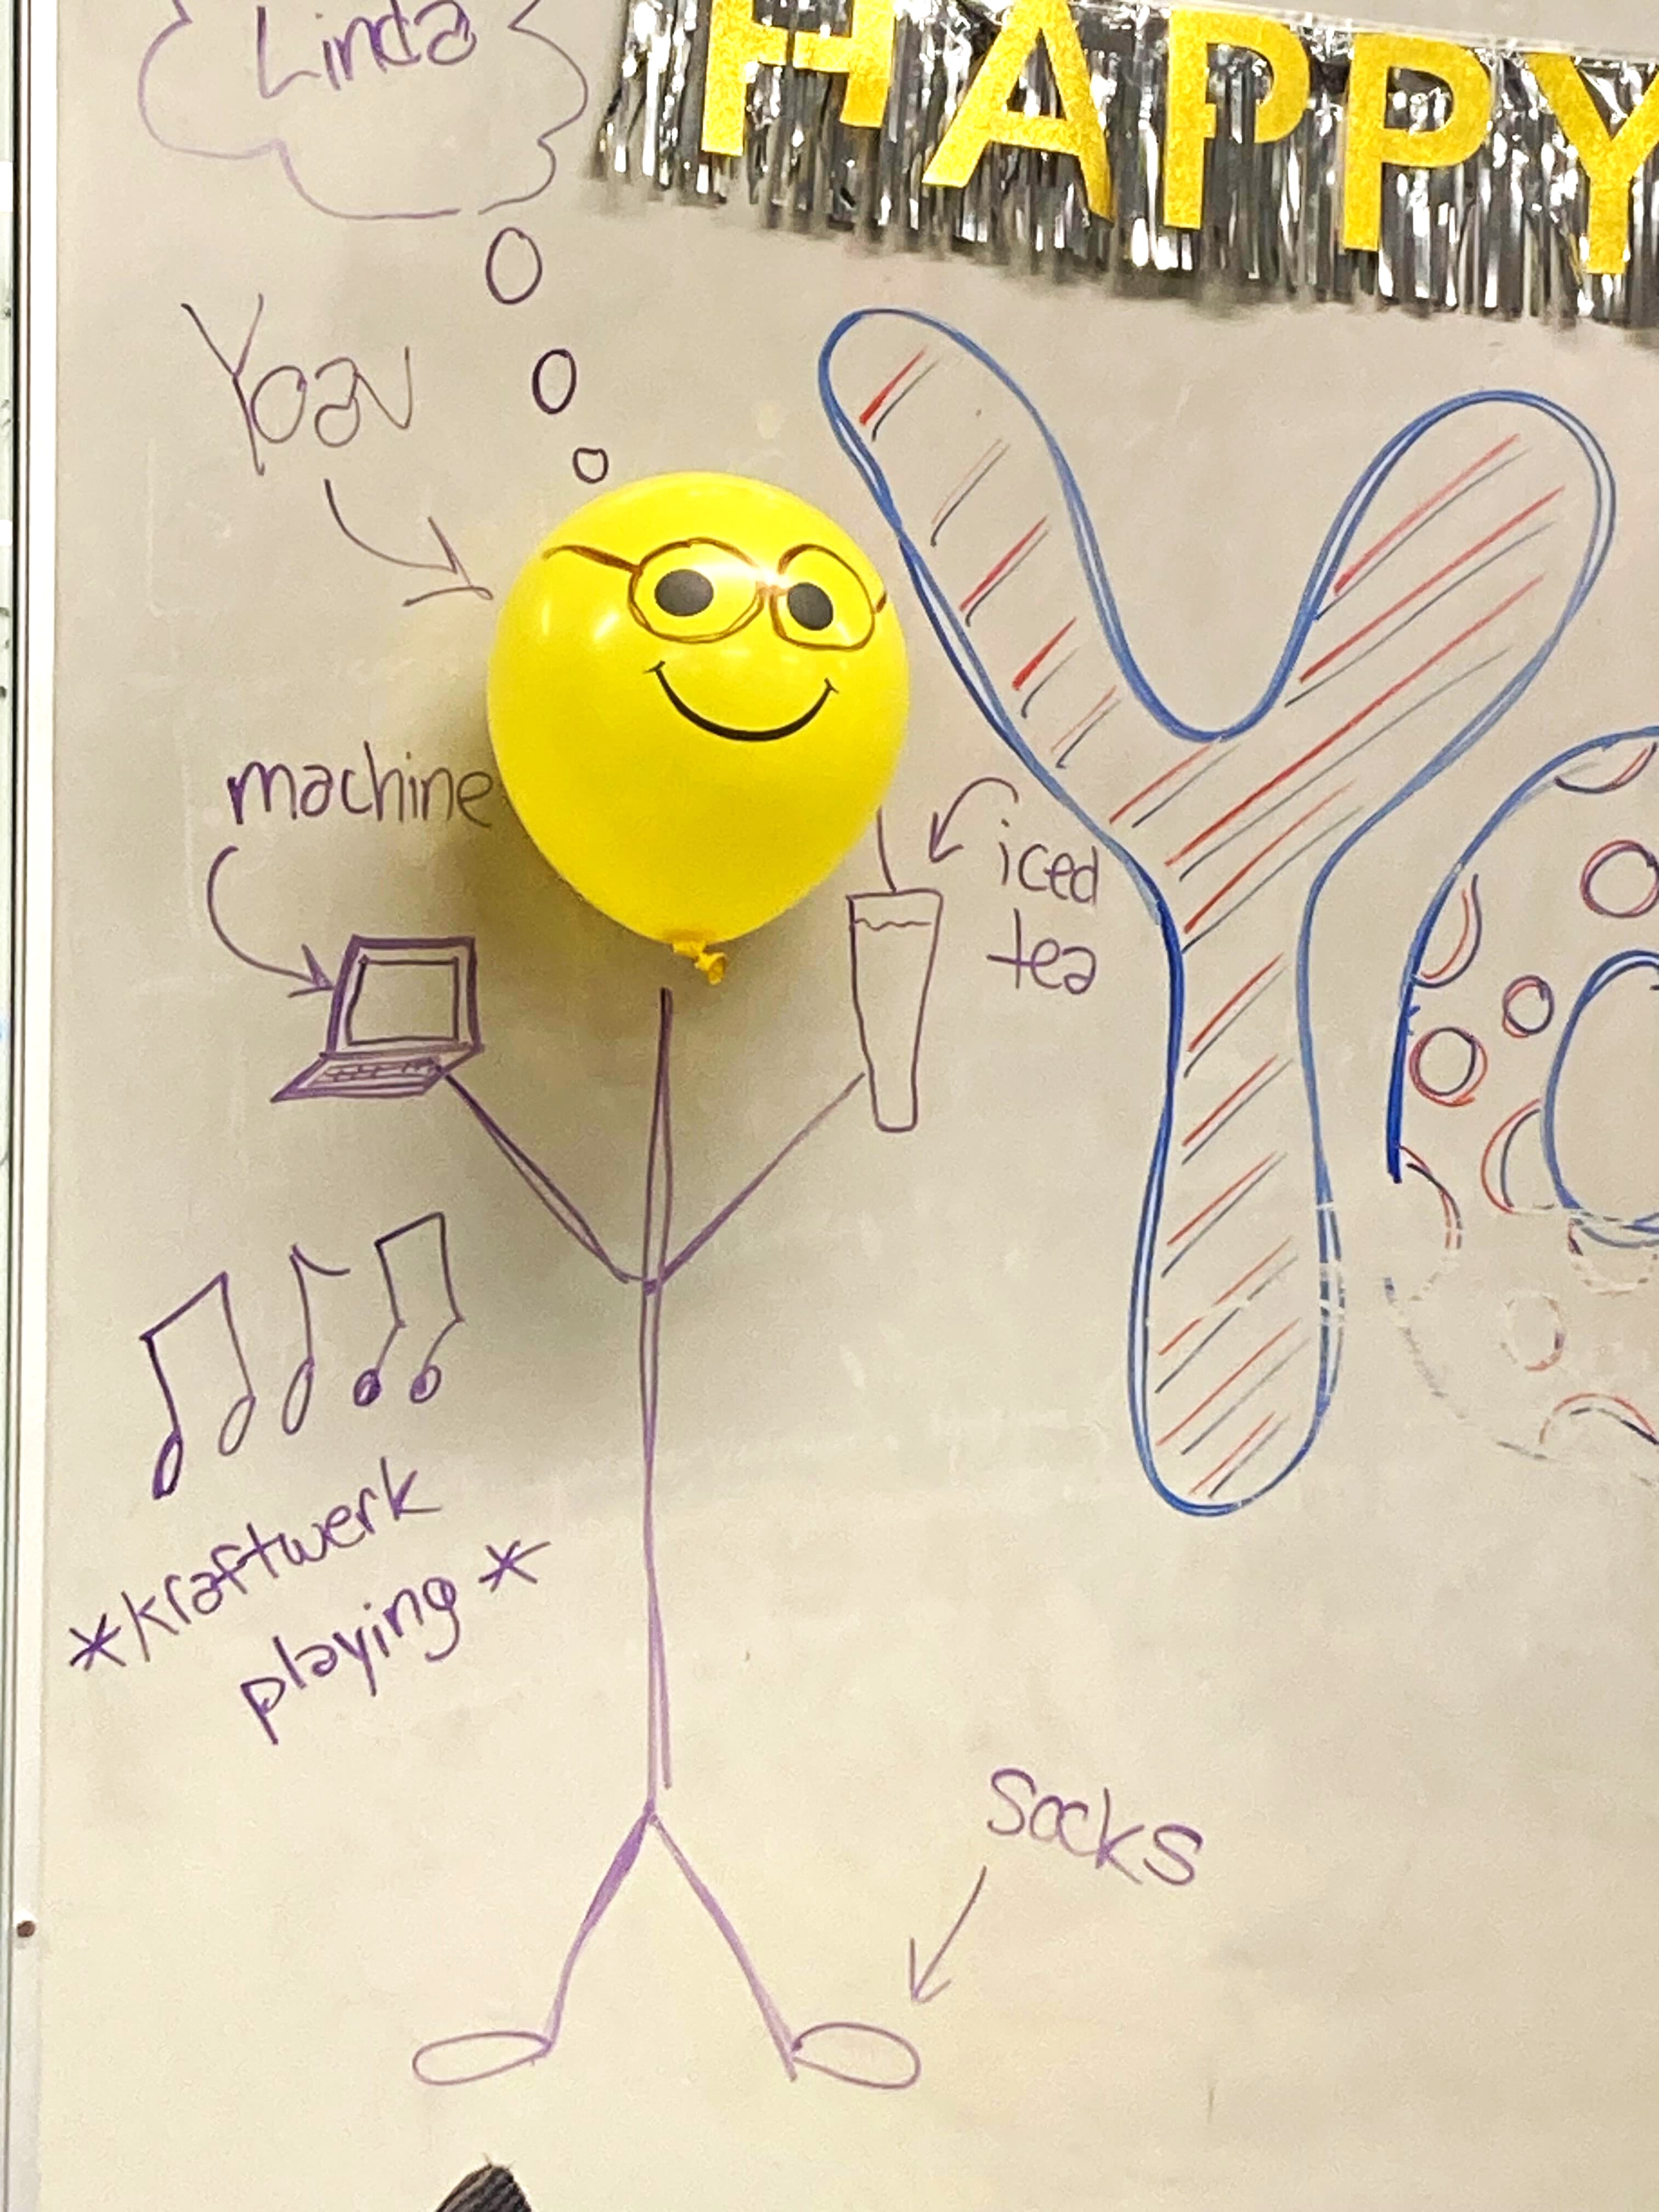 Linda
HAPPY
Yoav
machine
iced
tea
*kraftwerk
playing*
Socks
Y